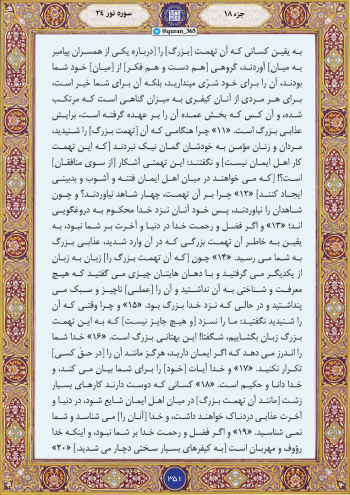 جزء ۱۸
سوره نور ۲۴
@quran_365
به یقین کسانی که آن تهمت [بزرگ] را [درباره یکی از همسران پیامبر
به میان] آوردند، گروهی [هم دست و هم فکر] از [میان] خود شما
بودند، آن را برای خود شرّی مپندارید، بلکه آن برای شما خیر است،
برای هر مردی از آنان کیفری به میزان گناهی است که مرتکب
شده، و آن کس که بخش عمده آن را بر عهده گرفته است، برایش
عذابی بزرگ است. «۱۱» چرا هنگامی که آن [تهمت بزرگ] را شنیدید،
مردان و زنان مؤمن به خودشان گمان نیک نبردند [که این تهمت
کار اهل ایمان نیست] و نگفتند: این تهمتی آشکار [از سوی منافقان]
است؟! [که می خواهند در میان اهل ایمان فتنه و آشوب و بدبینی
ایجاد کنند] «۱۲» چرا بر آن تهمت، چهار شاهد نیاوردند؟ و چون
شاهدان را نیاوردند، پس خود آنان نزد خدا محکوم به دروغگویی
اند؛ «۱۳» و اگر فضل و رحمت خدا در دنیا و آخرت بر شما نبود، به
یقین به خاطر آن تهمت بزرگی که در آن وارد شدید، عذابی بزرگ
به شما می رسید. «۱۴» چون [که آن تهمت بزرگ را] زبان به زبان
از یکدیگر می گرفتید و با دهان هایتان چیزی می گفتید که هیچ
معرفت و شناختی به آن نداشتید و آن را [عملی] ناچیز و سبک می
پنداشتید و در حالی که نزد خدا بزرگ بود. «۱۵» و چرا وقتی که آن
را شنیدید نگفتید: ما را نسزد [و هیچ جایز نیست] که به این تهمت
بزرگ زبان بگشاییم، شگفتا! این بهتانی بزرگ است. «۱۶» خدا شما
را اندرز می دهد که اگر ایمان دارید، هرگز مانند آن را [در حقّ کسی]
تکرار نکنید. «۱۷» و خدا آیات [خود] را برای شما بیان می کند، و
خدا دانا و حکیم است. «۱۸» کسانی که دوست دارند کارهای بسیار
زشت [مانند آن تهمت بزرگ] در میان اهل ایمان شایع شود، در دنیا و
آخرت عذابی دردناک خواهند داشت، و خدا [آنان را] می شناسد و شما
نمی شناسید. «۱۹» و اگر فضل و رحمت خدا بر شما نبود، و اینکه خدا
رؤوف و مهربان است [به کیفرهای بسیار سختی دچار می شدید.] «۲۰»
۳۵۱